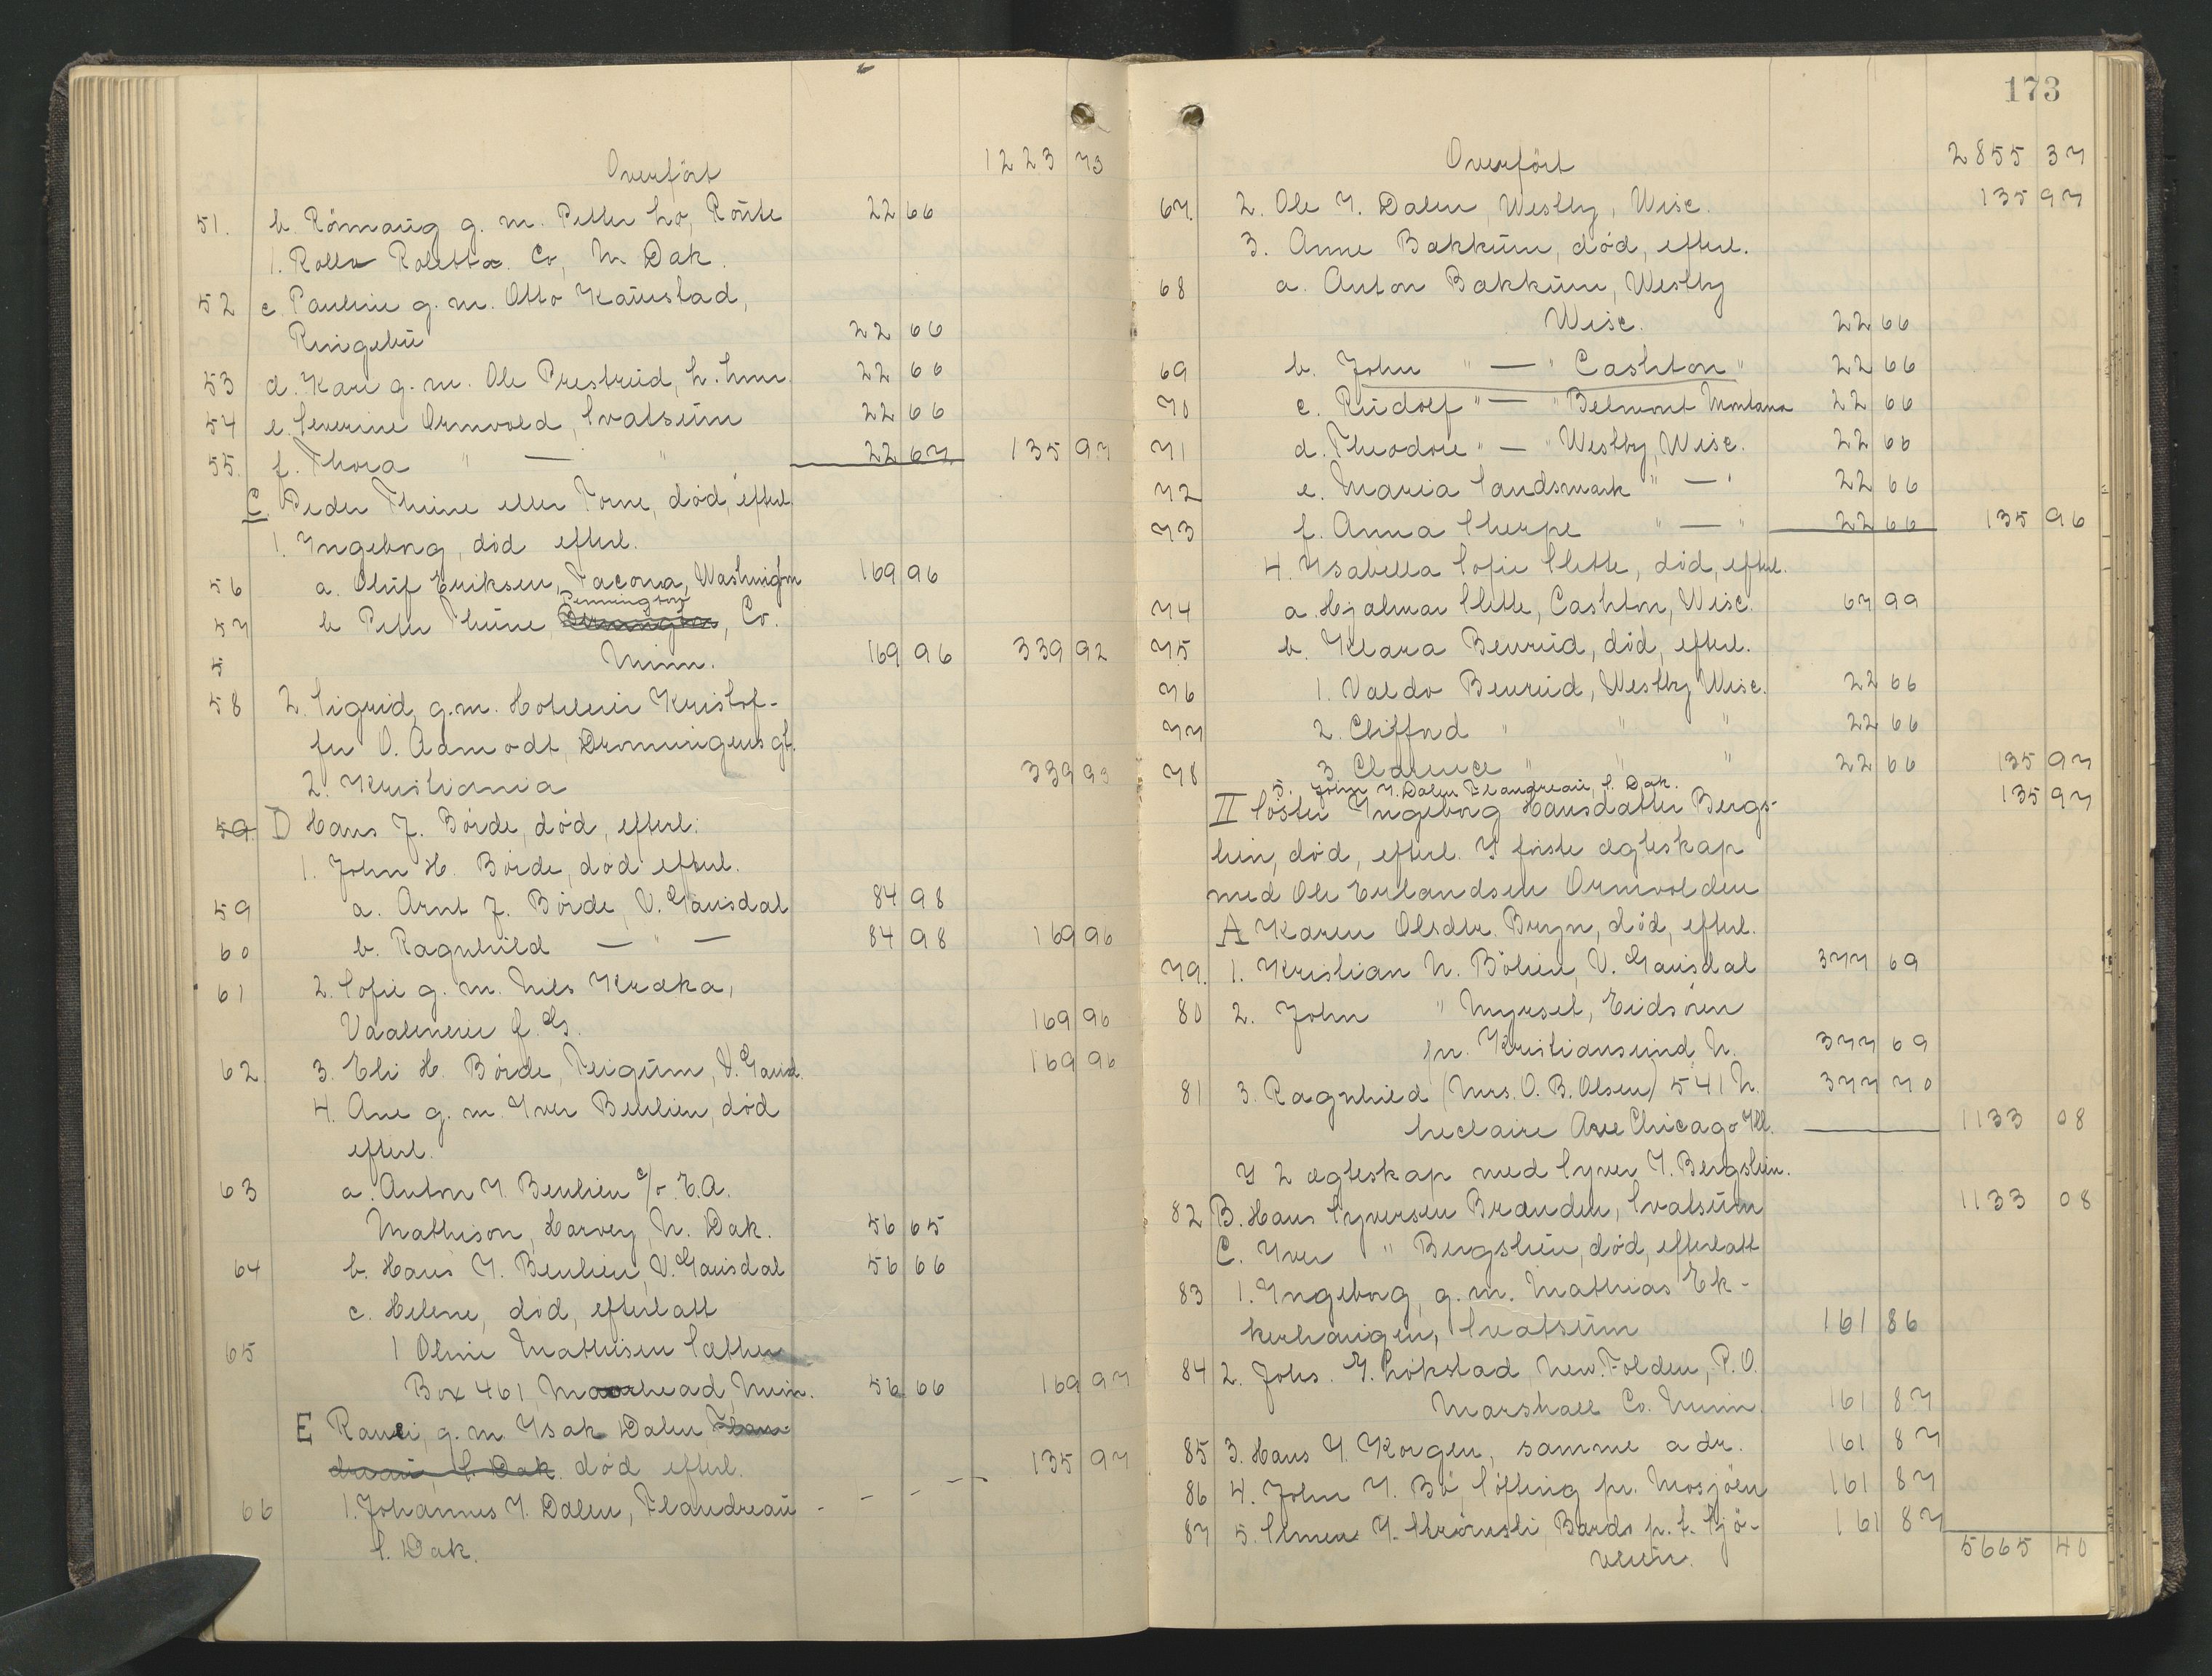 Overført 1223 73
51. b. Rönnaug g. m. Petter Lo, Route 22 66
1. Rolla Rolette Co, N. Dak.
52 c. Pauline g. m. Otto Kaurstad,
Ringebu 22 66
53 d. Kari g. m. Ole Prestrud, L.hmr. 22 66
54 e. Severine Ormvold, Svatsum 22 66
55. f. Thora " — " 22 67 135 97
C. Peder Thune eller Torne, död, efterl.
1. Ingeborg, död efterl.
56 a. Oluf Eriksen, Tacoma, Washington 169 96
Pennington
57 b Peter Thune, Co.
5 Minn. 169 96 339 92
58 2. Sigrid, g.m. Hotelleier Kristof-
fer O. Aamodt, Dronningens gt.
2. Kristiania 339 93
59. D Hans J. Böide, död, efterl.
1. John H. Böide, död efterl.
59 a. Arnt J. Böide, V. Gausdal 84 98
60 b. Ragnhild — " — 84 98 169 96
61 2. Sofie g. m. Nils Kraka,
Vaalemeie f. Gs. 169 96
62. 3. Eli H. Böide, Teigum, V. Gausd. 169 96
4. Ane g. m. Iver Benlien, död
efterl.
63 a. Anton I. Benlien c/o E.A.
Mathison, Harvey, N. Dak. 56 65
64 b. Hans I. Benlien, V. Gausdal 56 66
c. Helene, död, efterlatt
65 1 Oline Mathisen Sæther
Box 461, Moorhead, Minn. 56 66 169 97
E Randi, g. m. Isak Dalen, Flan-
dreau, S. Dak. död efterl. 135 97
66 1. Johannes I. Dalen, Flandreau - - - —
S. Dak.
173
Overført 2855 37
67. 2. Ole I. Dalen, Westby, Wisc. 135 97
3. Anne Bakkum, död, efterl.
68 a. Anton Bakkum, Westby
Wisc. 22 66
69 b. John " — " Cashton " 22 66
70 c. Rudolf " — " Belmont Montana 22 66
71 d. Theodore " — " Westby, Wisc. 22 66
72 e. Maria Sandsmark " — " 22 66
73 f. Anna Sherpe " — " 22 66 135 96
4. Isabella Sofie Slette, död, efterl.
74 a. Hjalmar Slette, Cashton, Wisc. 67 99
75 b. Klara Benrud, död, efterl.
76 1. Valdo Benrud, Westby Wisc. 22 66
77 2. Clifford " " " 22 66
78 3. Clarence " " " 22 66 135 97
5. John I. Dalen Flandreau, S. Dak. 135 97
II Söster Ingeborg Hansdatter Bergs-
lien, död, efterl. I første ægteskap
med Ole Erlandsen Ormvolden
A Karen Olsdtr. Bryn, död, efterl.
79. 1. Kristian N. Bölien, V. Gausdal 377 69
80 2. John " Myrset, Eidsören
pr. Kristiansund N. 377 69
81 3. Ragnhild (Mrs. O. B. Olsen) 541 N. 377 70
Leclaire Ave Chicago Ill. 1133 08
I 2 ægteskap med Syver I. Bergslien.
82 B. Hans Syversen Brænden, Svatsum 1133 08
C. Iver " Bergslien, död, efterlatt
83 1. Ingeborg, g. m. Mathias Ek-
kerhaugen, Svatsum 161 86
84 2. Johs. I. Lökstad New Folden, P.O.
Marshall Co. Minn. 161 87
85 3. Hans I. Korgen, samme adr. 161 87
86 4. John I. Bö, Söfting pr. Mosjöen 161 87
87 5. Simen I. Strömsli, Bardo p. t. Sjö-
veien. 161 87
5665 40